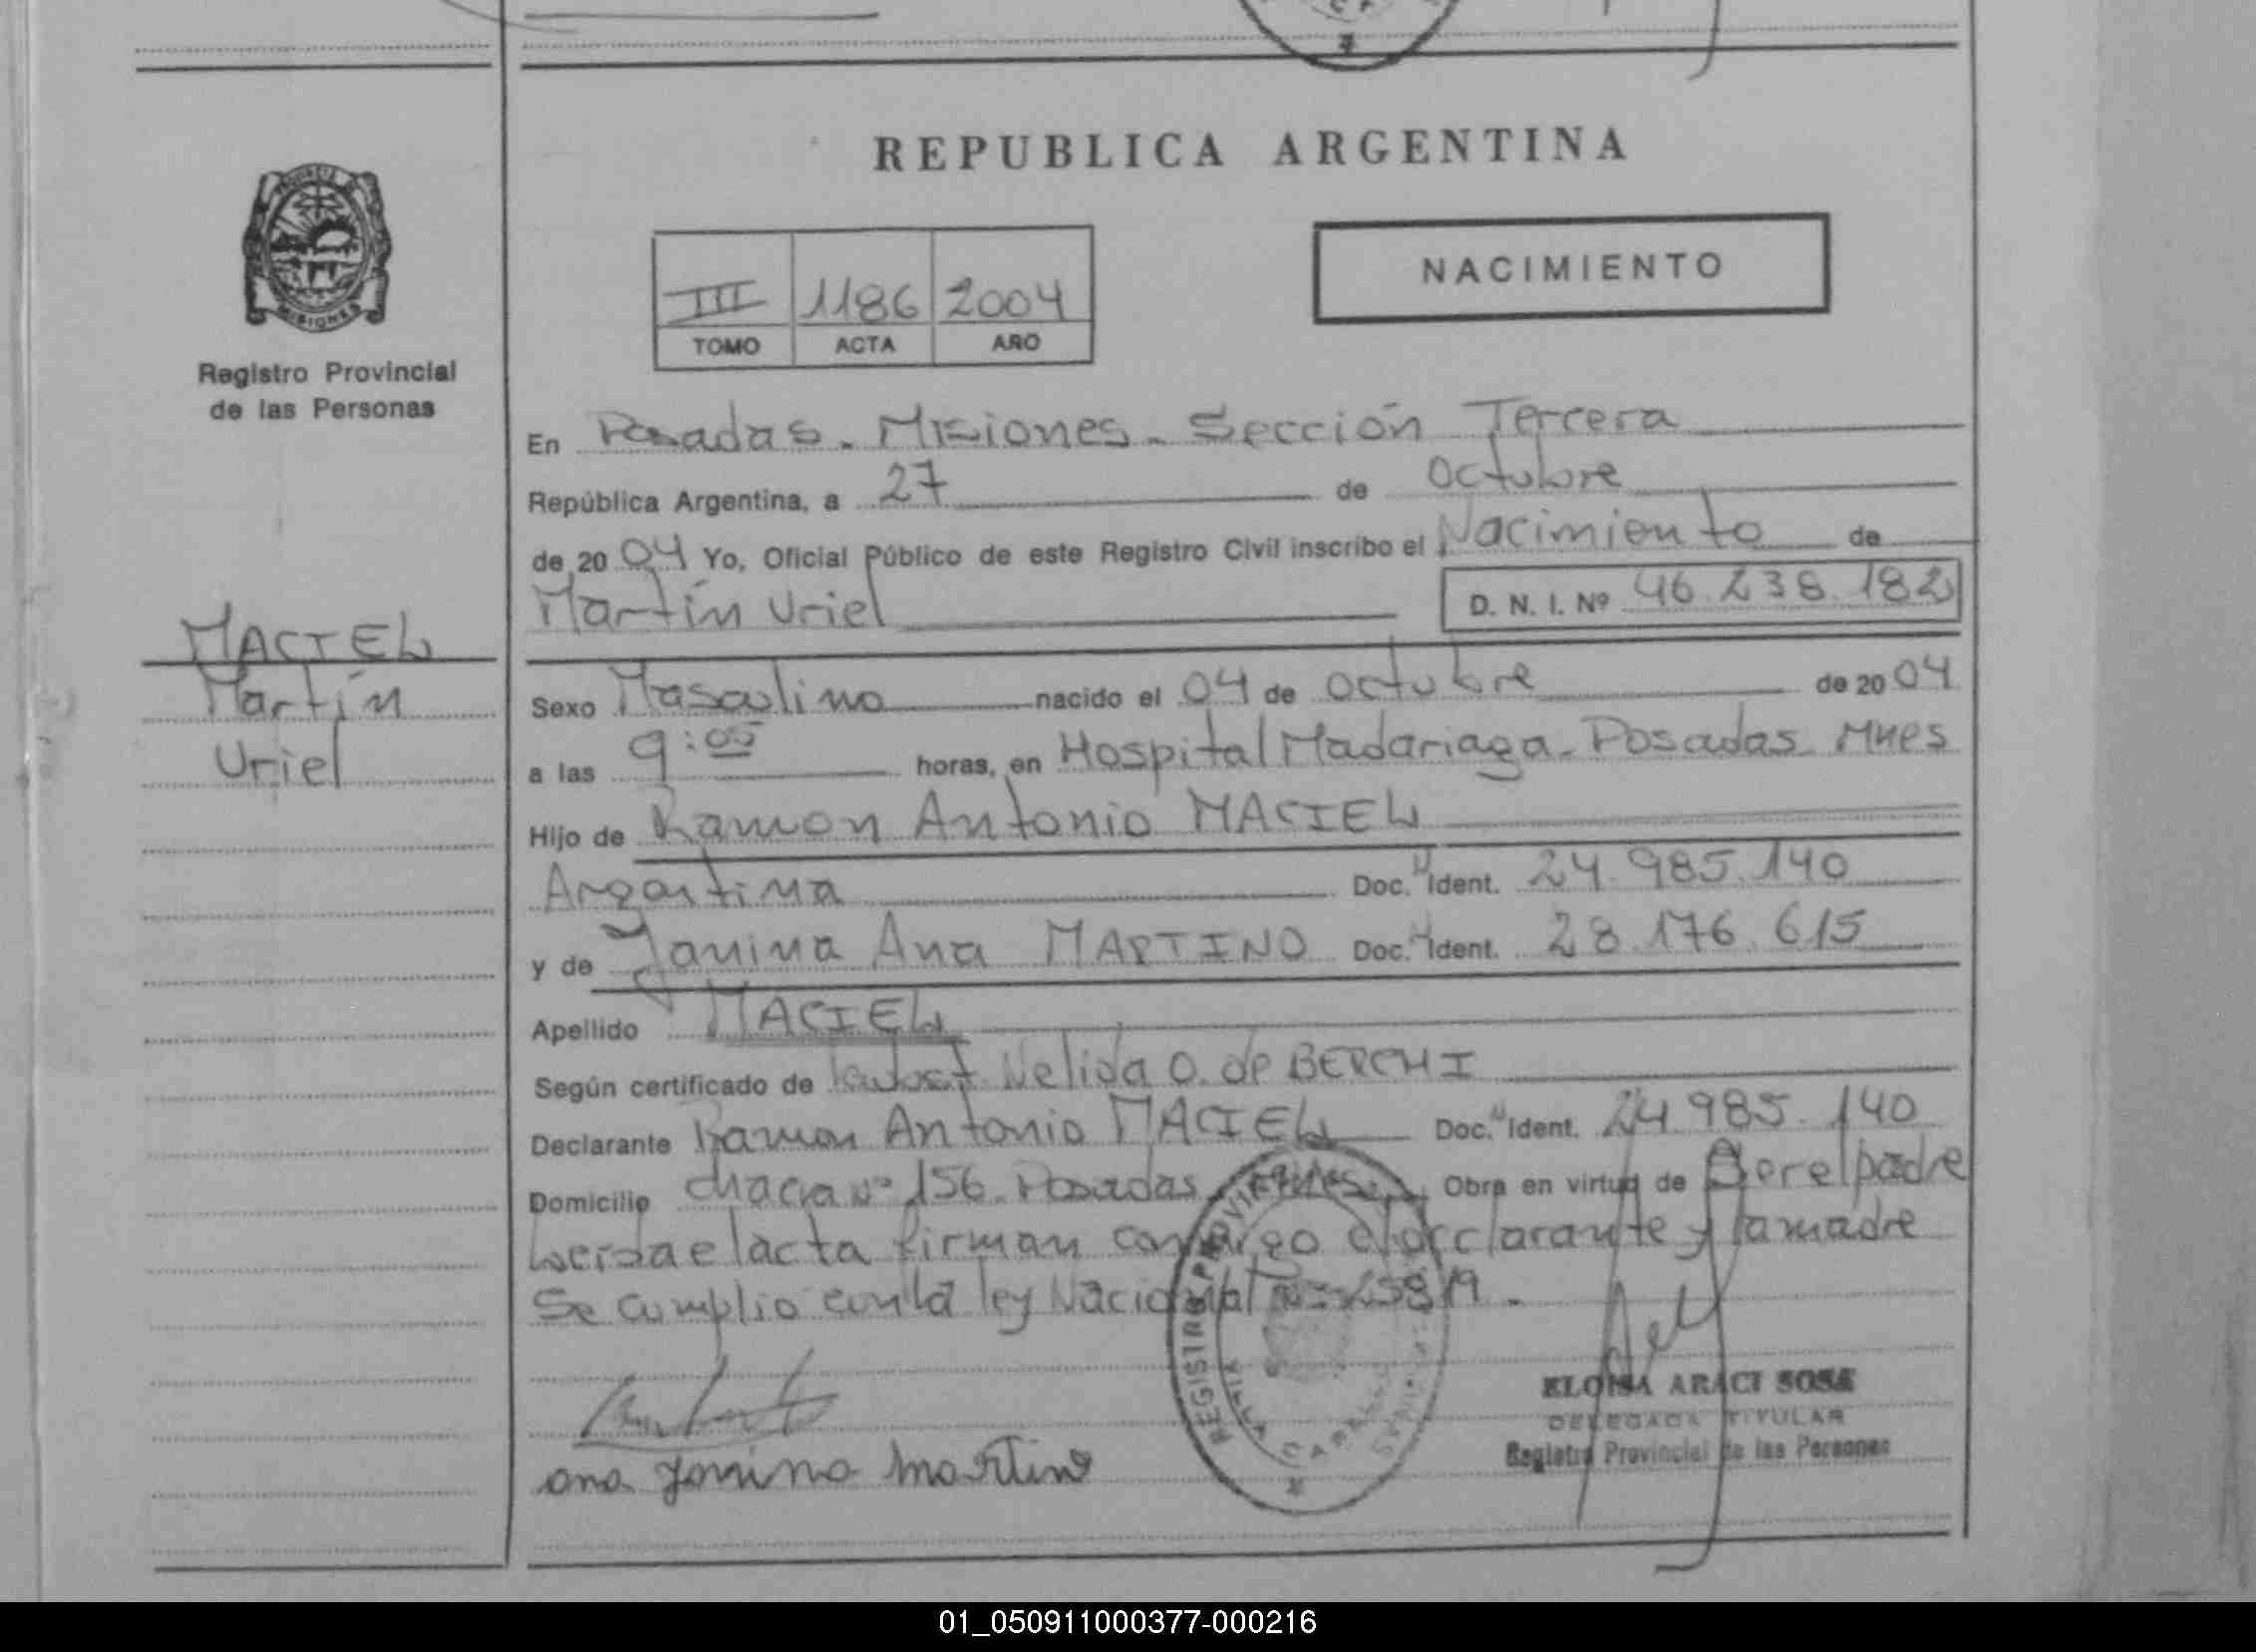 REPUBLICA ARGENTINA
NACIMIENTO
III 1186 2004
TOMO ACTA AÑO
PROVINCIA DE
MISIONES
Registro Provincial
de las Personas
MACIEL
Martín
Uriel
En Posadas. Misiones. Sección Tercera
República Argentina, a 27 de Octubre
de 2004 Yo, Oficial Público de este Registro Civil inscribo el Nacimiento de
Martín Uriel D. N. I. Nº 46.238.182
Sexo Masculino nacido el 04 de octubre de 2004
a las 9:05 horas, en Hospital Madariaga. Posadas Mnes
Hijo de Ramon Antonio MACIEL
Argentina Doc. Ident. 24.985.140
y de Janina Ana MARTINO Doc. Ident. 28.176.615
Apellido MACIEL
Según certificado de Nelida O. de BERCHI
Declarante Ramon Antonio MACIEL Doc. Ident. 24.985.140
Domicilio chacra nº 156. Posadas Mnes. Obra en virtud de Ser el padre
Leida el acta firman conmigo el declarante y la madre
Se cumplio con la ley Nacional Nº 25819.
ELOISA ARACI SOSA
DELEGADA TITULAR
Registro Provincial de las Personas
Ana Janina Martino
01_050911000377-000216